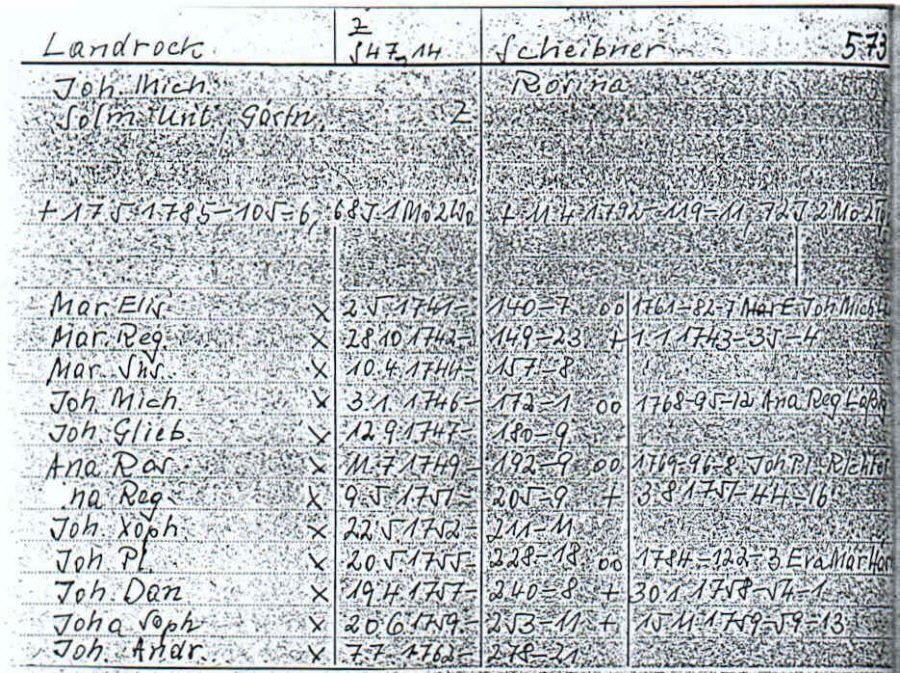 Landrock Z 547,14 Scheibner 573
Joh. Mich. Rosina
Solm. Unt. Gärtn. Z
+ 17.5.1785-105-6, 68J 1Mo 2Wo + 11.4.1792-119-11, 72J 2Mo
Mar. Elis. x 2.5.1741- 140-7 oo 1761-82-7 Joh Mich
Mar. Reg. x 28.10.1742- 149-23 + 1.1.1743-35-4
Mar. Sus. x 10.4.1744- 157-8
Joh. Mich x 3.1.1746- 172-1 oo 1768-95-12 Ana Reg
Joh. Glieb. x 12.9.1747- 180-9
Ana Ros. x 11.7.1749- 192-9 oo 1769-96-8 Joh Pl. Richter
na Reg. x 9.5.1751- 205-9 + 3.8.1751-44-16
Joh. Xoph. x 22.5.1752- 211-11
Joh. Pl. x 20.5.1755- 228-18 oo 1784-122-3 Eva Mar
Joh. Dan x 19.4.1757- 240-8 + 30.1.1758-54-1
Joha Soph x 20.6.1759- 253-11 + 15.11.1759-59-13
Joh. Andr. x 7.7.1762- 278-21